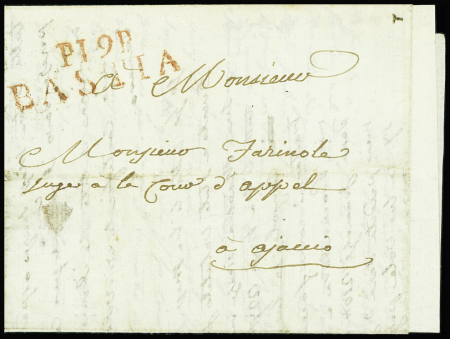 P19P
BASTIA
a Monsieur
Monsieur Farinole
juge a la Cour d'appel
à ajaccio